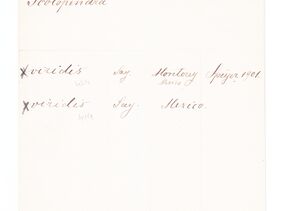 Scolopendra
x viridis Say. Monterey Mexico Speyer 1901.
x viridis Say. Mexico.